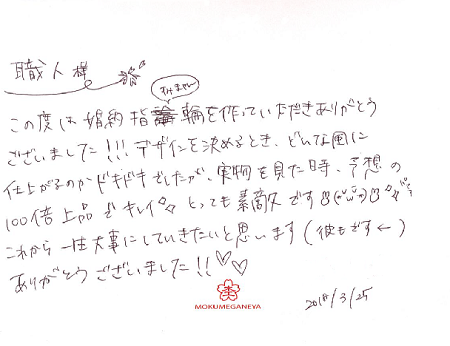 職人様
すみませんー
この度は婚約指輪を作っていただきありがとう
ございました!!! デザインを決めるとき、どんな風に
仕上がるのかドキドキでしたが、実物を見た時、予想の
100倍上品でキレイ とっても素敵です
これから一生大事にしていきたいと思います(彼もです←)
ありがとうございました!!♡♡
MOKUMEGANEYA
2018/3/25